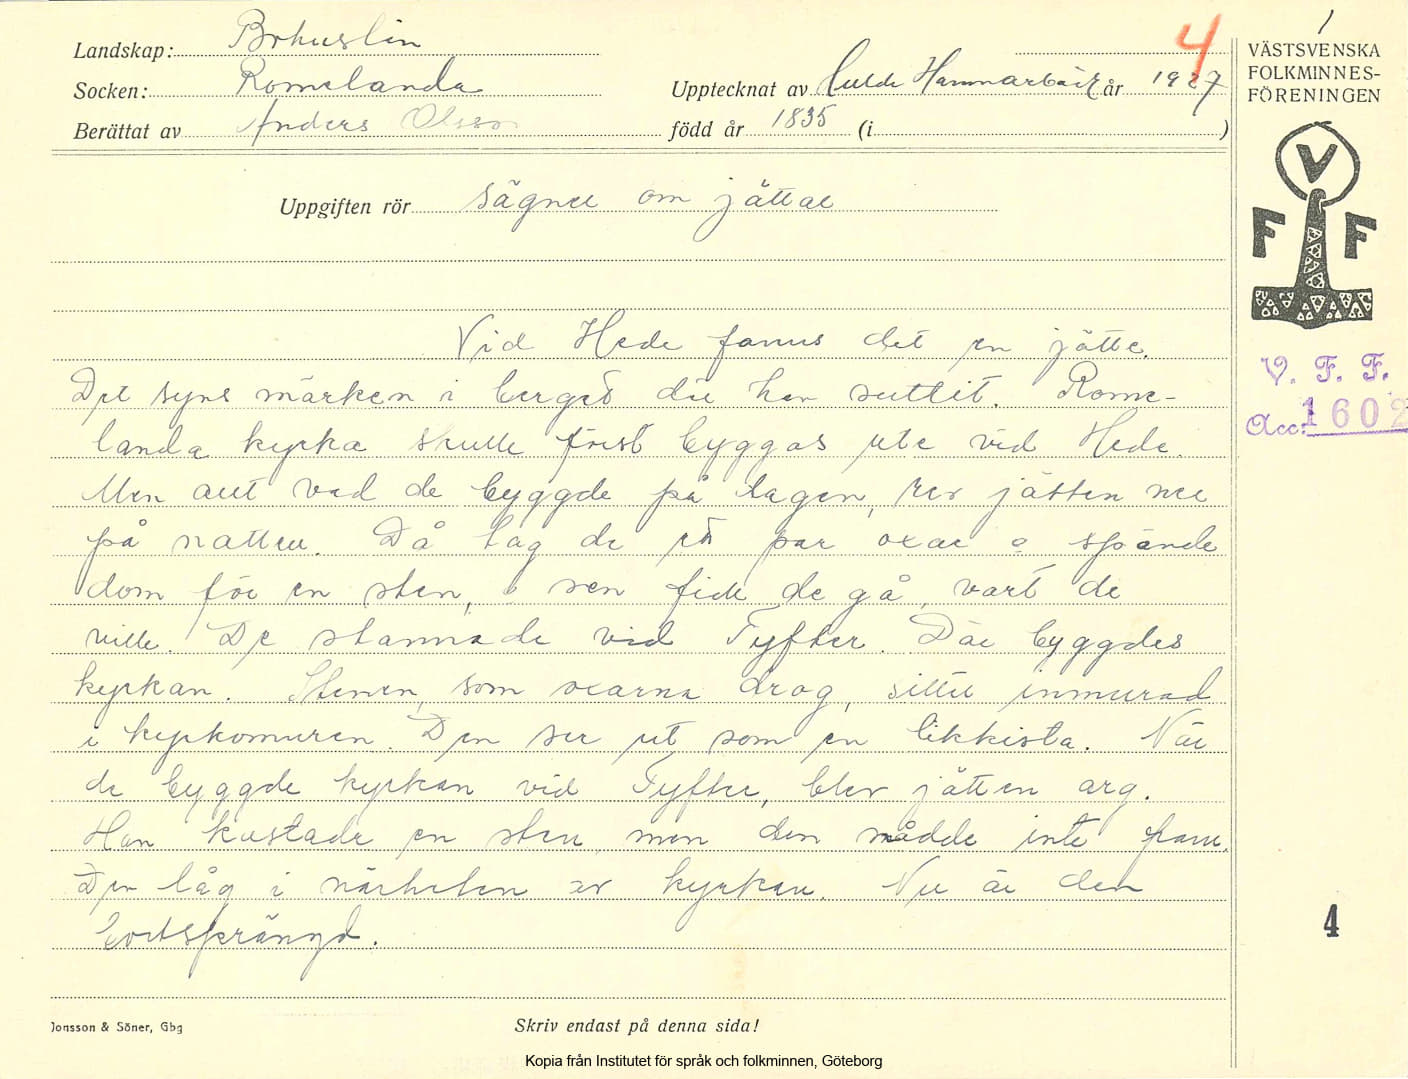 Landskap: Bohuslän
Socken: Romelanda
Upptecknat av Hulda Hammarbäck år 1927
Berättat av Anders Olsson
född år 1835 (i )
Uppgiften rör sägner om jättar
4
1
VÄSTSVENSKA
FOLKMINNES-
FÖRENINGEN
V
F F
V. F. F.
Acc: 1602
Vid Hede fanns det en jätte.
Det syns märken i berget där han suttit. Rome-
landa kyrka skulle först byggas ute vid Hede.
Men allt vad de byggde på dagen, rev jätten ner
på natten. Då tog de ett par oxar o spände
dom för en sten, o sen fick de gå, vart de
ville. De stannade vid Tyfter. Där byggdes
kyrkan. Stenen, som oxarna drog, sitter inmurad
i kyrkomuren. Den ser ut som en likkista. När
de byggde kyrkan vid Tyfter, blev jätten arg.
Han kastade en sten, men den nådde inte fram.
Den låg i närheten av kyrkan. Nu är den
bortsprängd.
4
Jonsson & Söner, Gbg
Skriv endast på denna sida!
Kopia från Institutet för språk och folkminnen, Göteborg